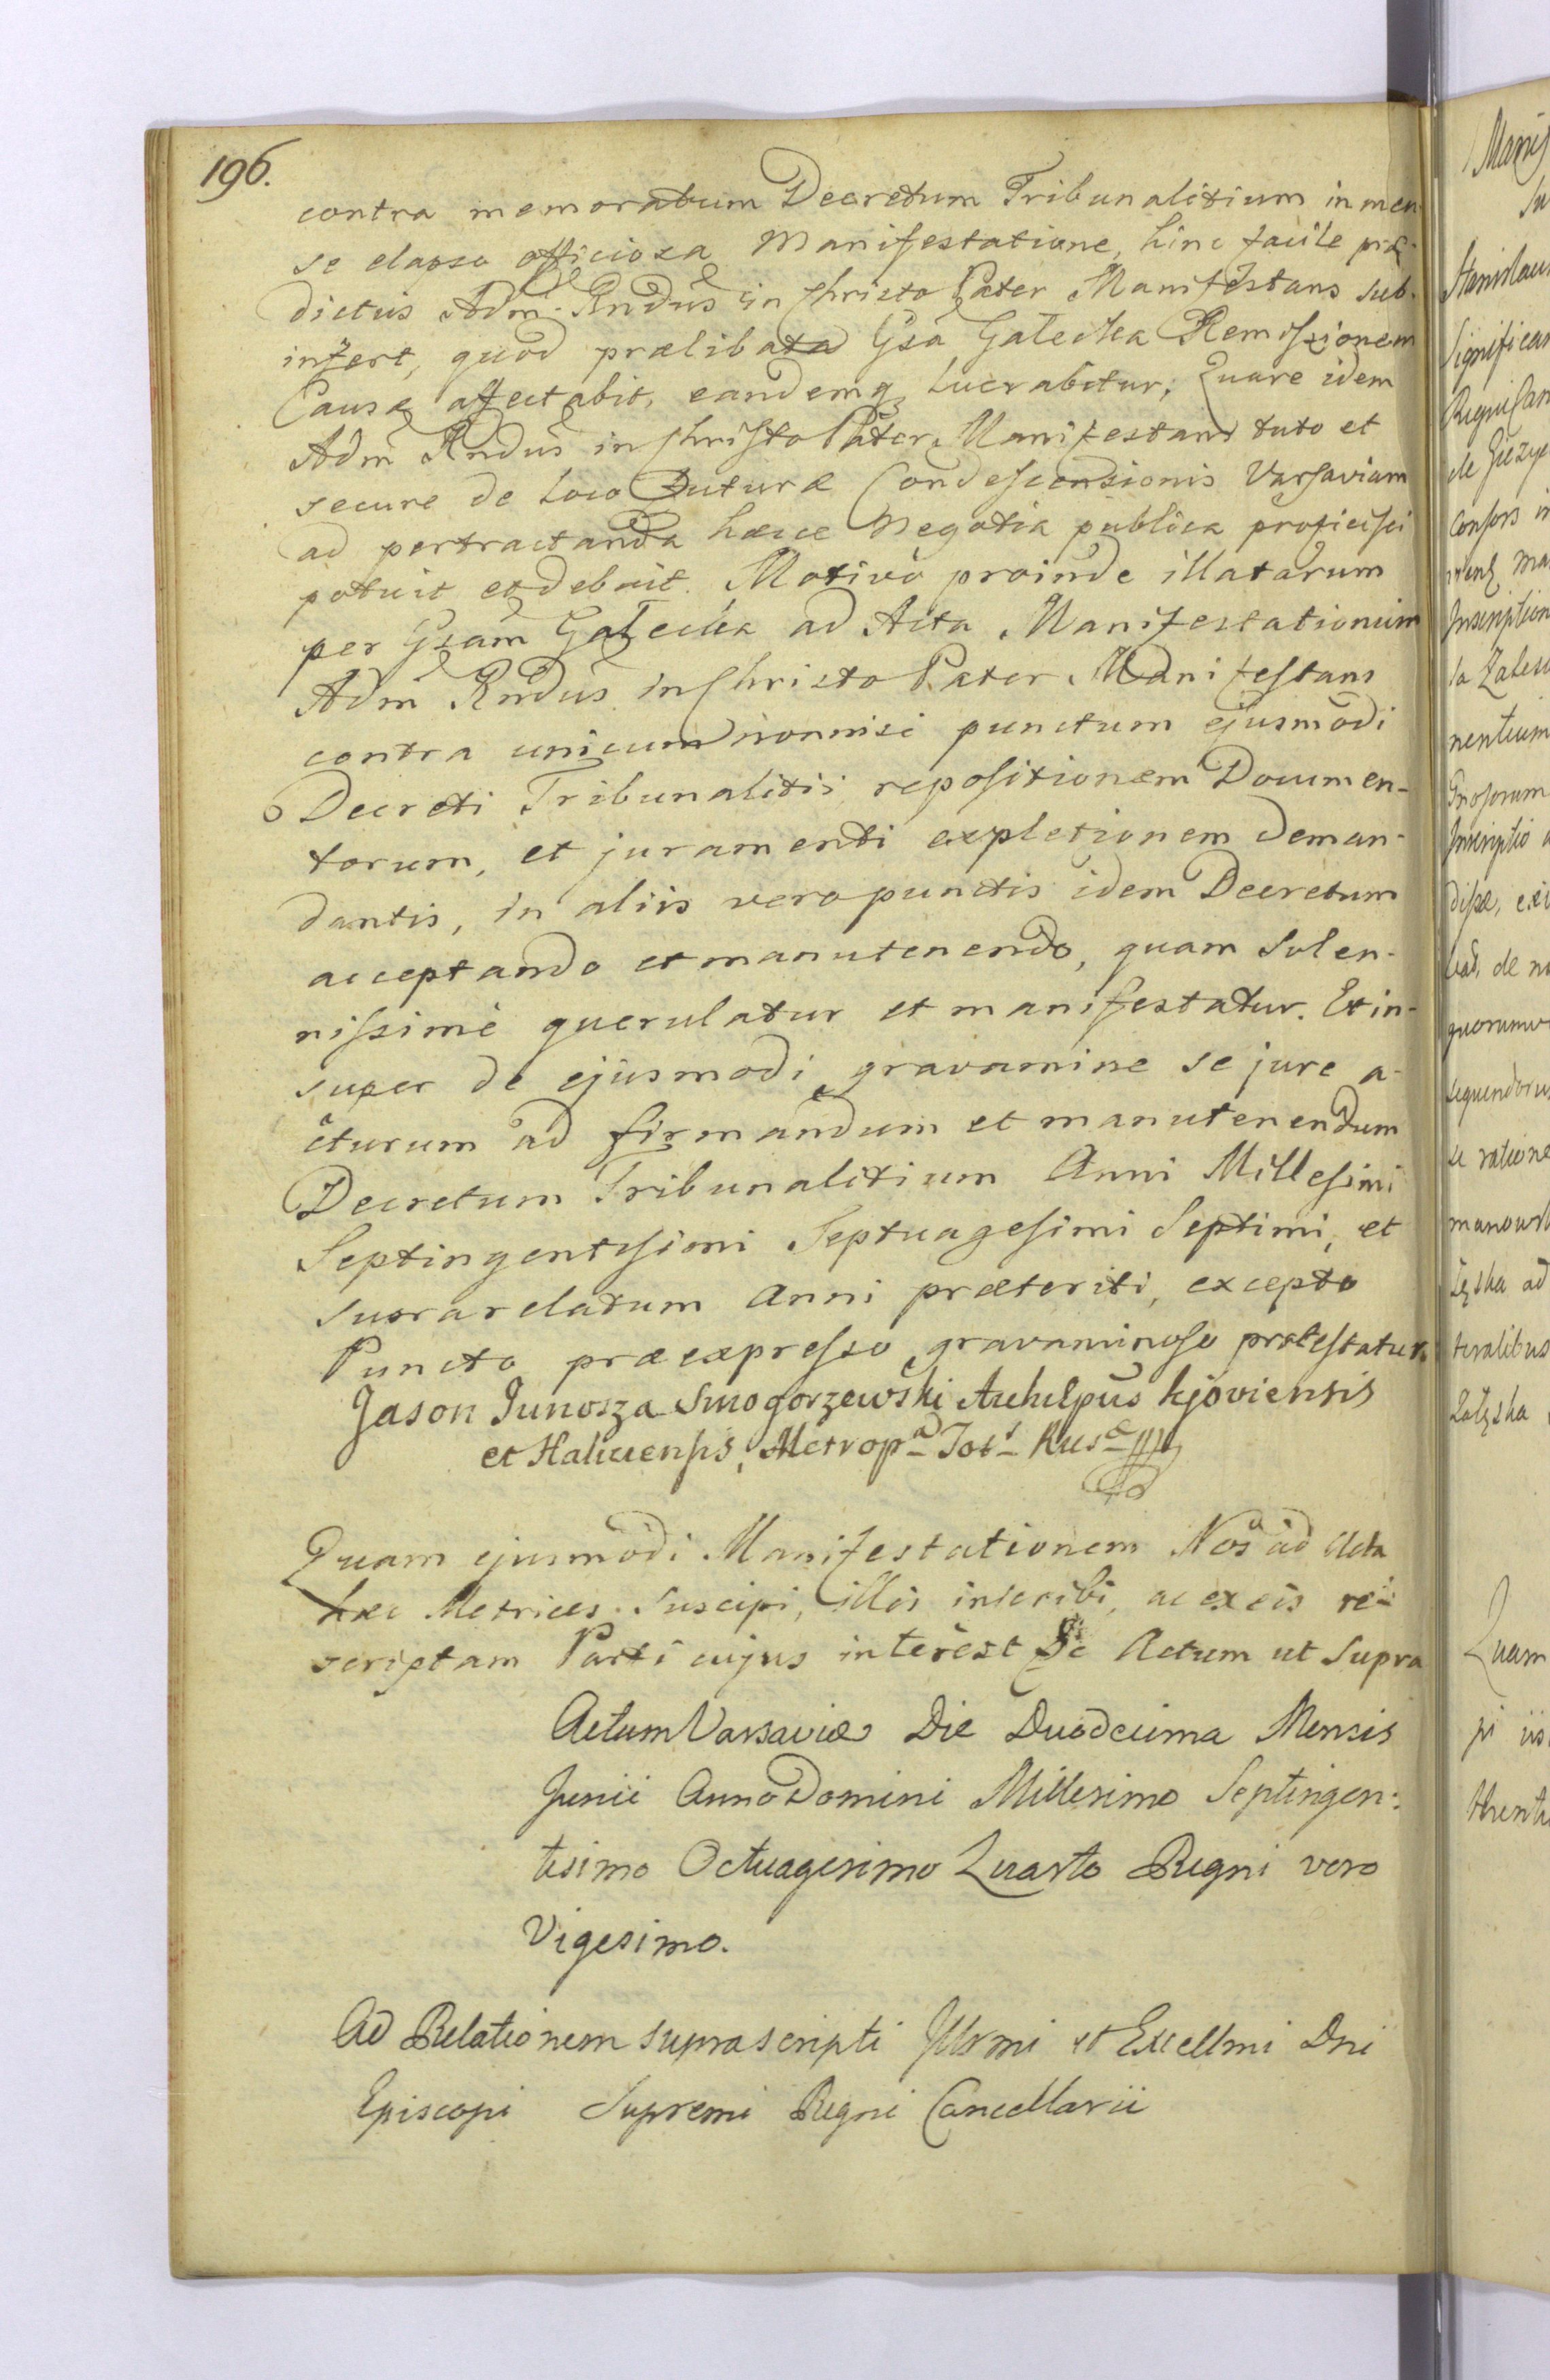 196.
contra memoratum Decretum Tribunalitium in men
se elapso officiosa Manifestatione, hinc facile præ-
dictus Adm. Rndus in Christo Pater Manifestans sub-
infert, quod prælibata Gsa Gałecka Remissionem
Causæ affectabit, eandemq lucrabitur; Quare idem
Adm Rndus in Christo Pater Manifestans tuto et
secure de Loco futuræ Condescensionis Varsaviam
ad pertractanda hæcce Negotia publica proficisci
potuit et debuit. Motivo proinde illatarum
per Gsam Gałecka ad Acta Manifestationum
Adm Rndus in Christo Pater Manifestans
contra unicum nonnisi punctum ejusmodi
Decreti Tribunalitii repositionem Documen-
torum, et juramenti expletionem deman-
dantis, in aliis vero punctis idem Decretum
acceptando et manutenendo, quam solen-
nissimè querulatur et manifestatur. Et in-
super de ejusmodi gravamine se jure a-
cturum ad firmandum et manutenendum
Decretum Tribunalitium Anni Millesimi
Septingentesimi Septuagesimi Septimi, et
suprarelatum Anni præteriti, excepto
Puncto præexpresso gravaminoso protestatur.
Jason Junosza Smogorzewski Archiepus Kjoviensis
et Haliciensis, Metropa Tots Rusæ
Quam ejusmodi Manifestationem Nos ad Acta
hæc Metrices suscipi, illis inscribi, ac ex eis re-
scriptam Parti cujus interest De Actum ut supra
Actum Varsaviæ Die Duodecima Mensis
Junii Anno Domini Millesimo Septingen:
tesimo Octuagesimo Quarto Regni vero
Vigesimo.
Ad Relationem suprascripti Illsmi et Excellmi Dni
Episcopi Supremi Regni Cancellarii